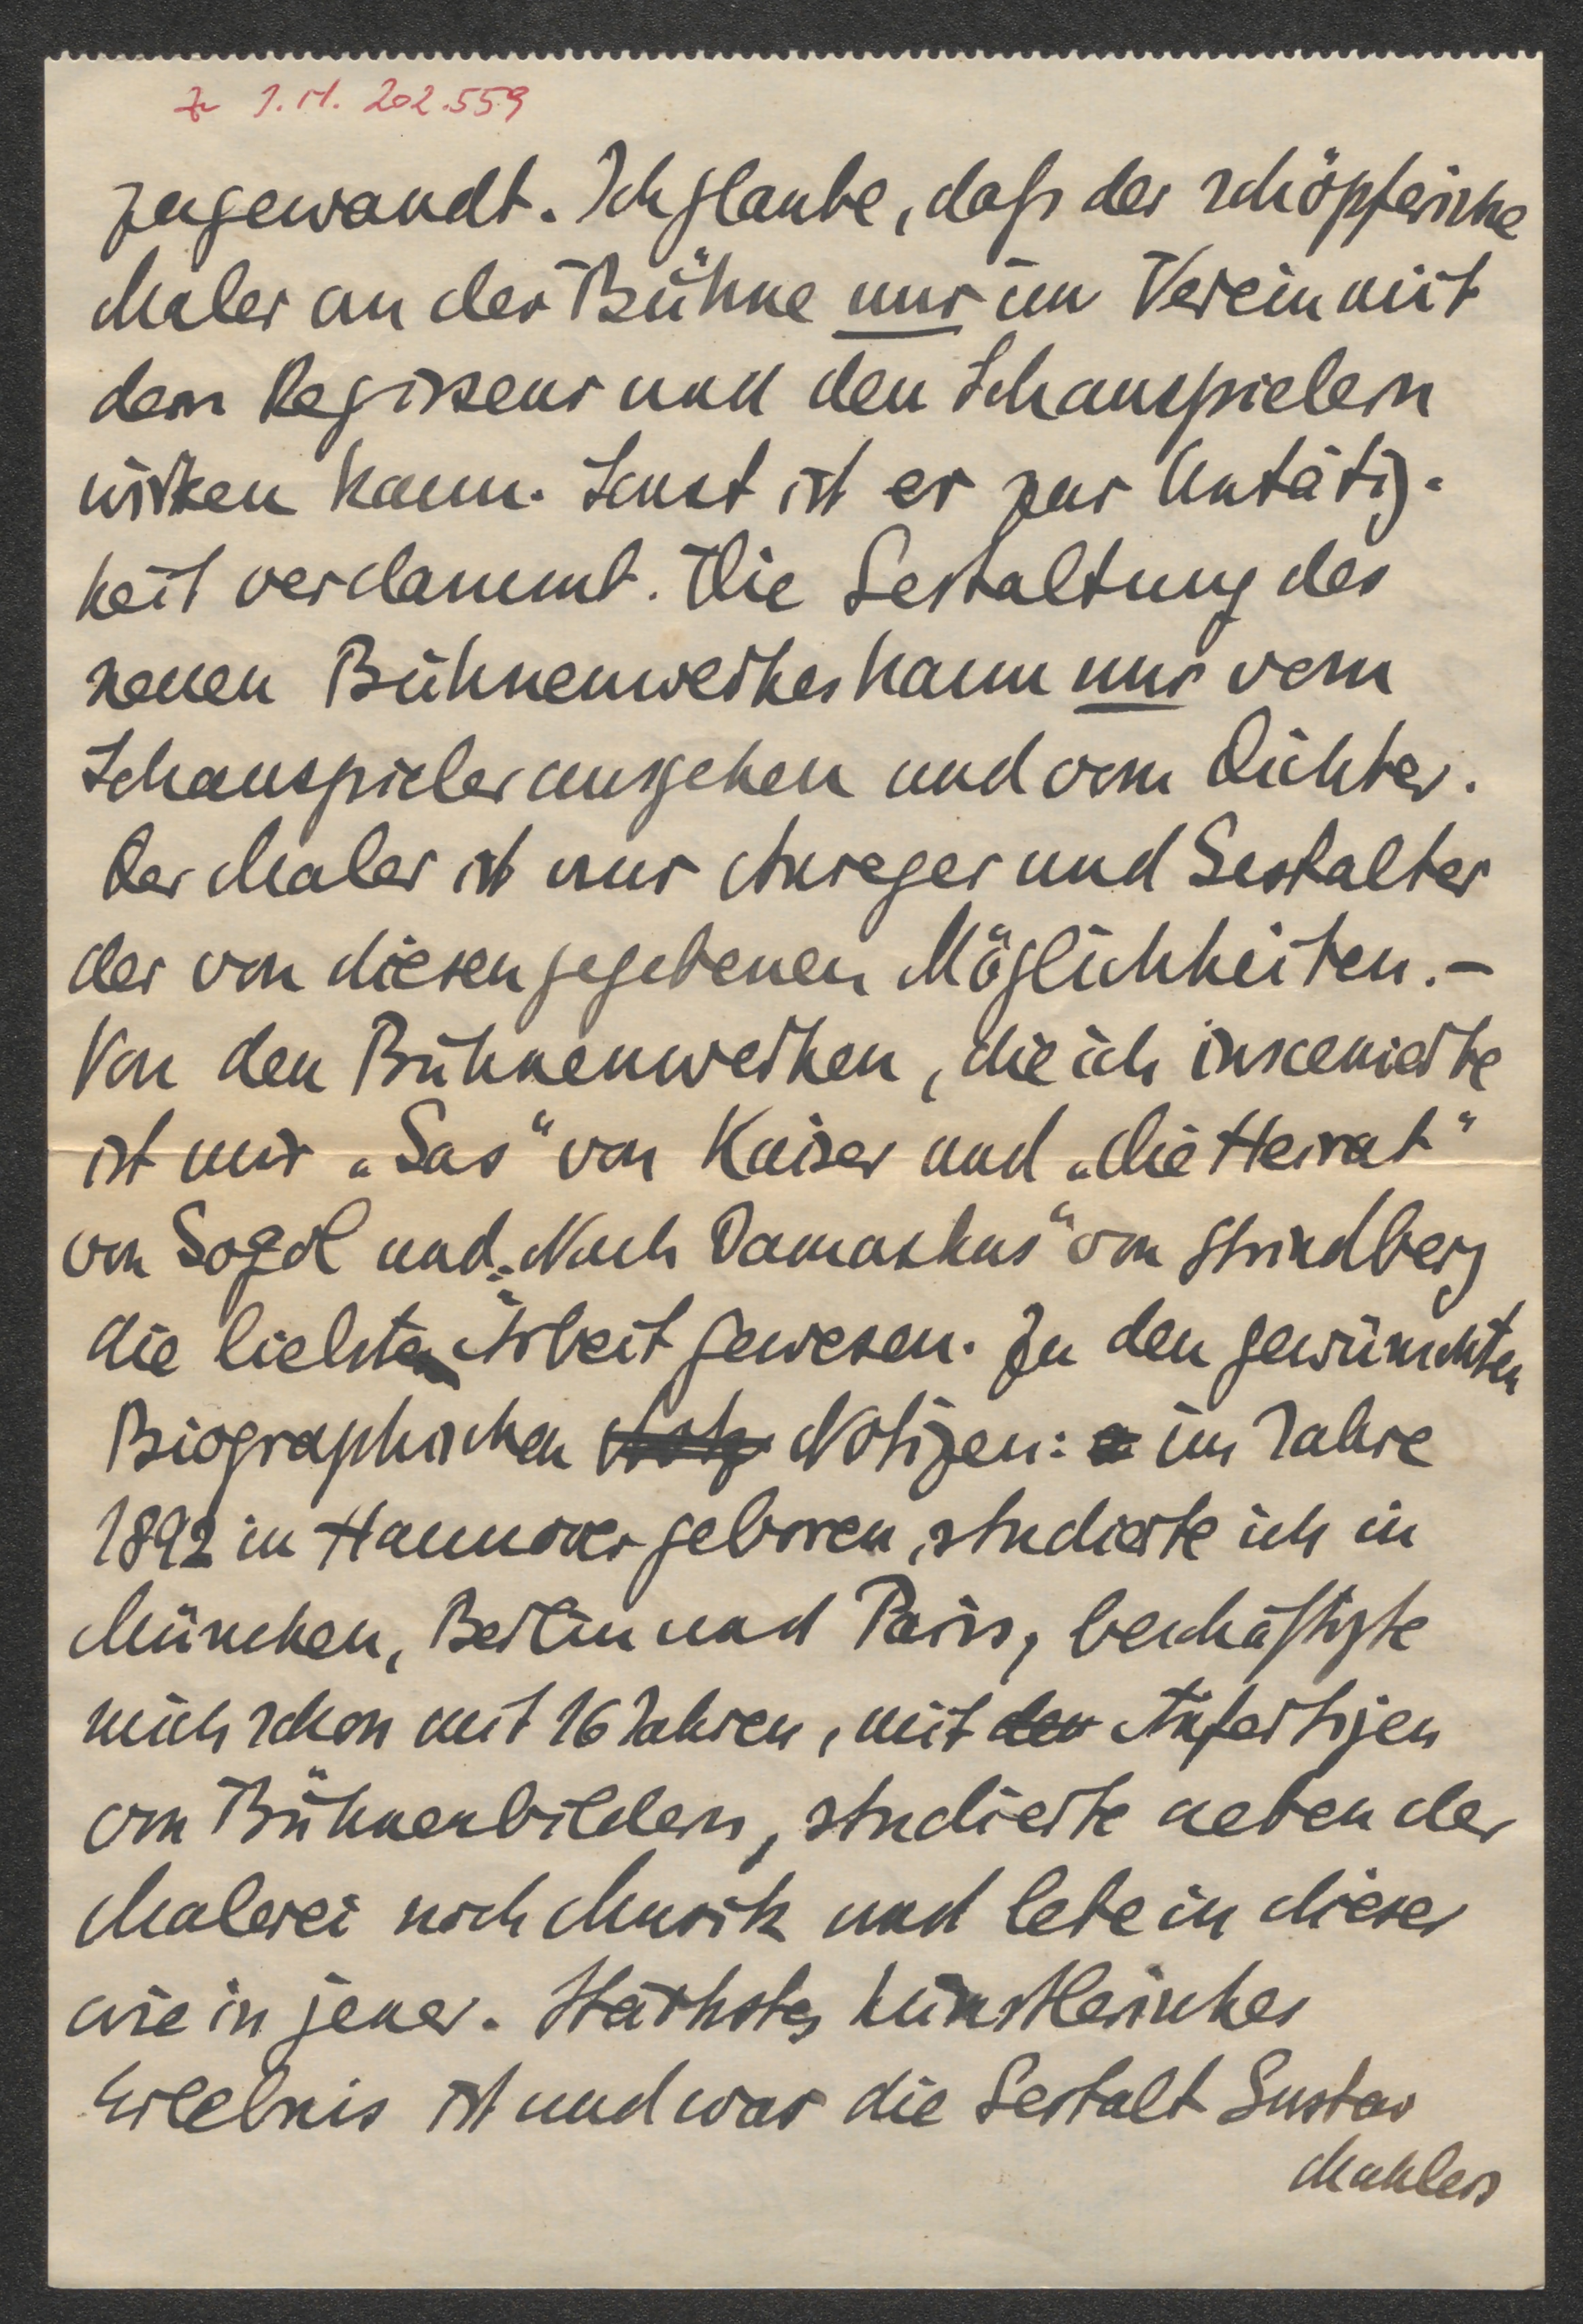 Zu I.N. 202.559
zugewandt. Ich glaube, daß der schöpferische
Maler an der Bühne nur im Verein mit
dem Regisseur und den Schauspielern
wirken kann. Sonst ist er zur Untätig-
keit verdammt. Die Gestaltung des
neuen Bühnenwerkes kann nur vom
Schauspieler ausgehen und vom Dichter.
Der Maler ist nur Anreger und Gestalter
der von diesen gegebenen Möglichkeiten.–
Von den Bühnenwerken, die ich inscenierte
ist mir „Gas“ von Kaiser und „die Heirat“
von Gogol und „Nach Damaskus“ von Strindberg
die liebste Arbeit gewesen. Zu den gewünschten
Biographischen Notizen: im Jahre
1892 in Hannover geboren, studierte ich in
München, Berlin und Paris, beschäftigte
mich schon mit 16 Jahren, mit Anfertigen
von Bühnenbildern, studierte neben der
Malerei noch Musik und lebe in dieser
wie in jener. Stärkstes künstlerisches
Erlebnis ist und war die Gestalt Gustav
Mahlers